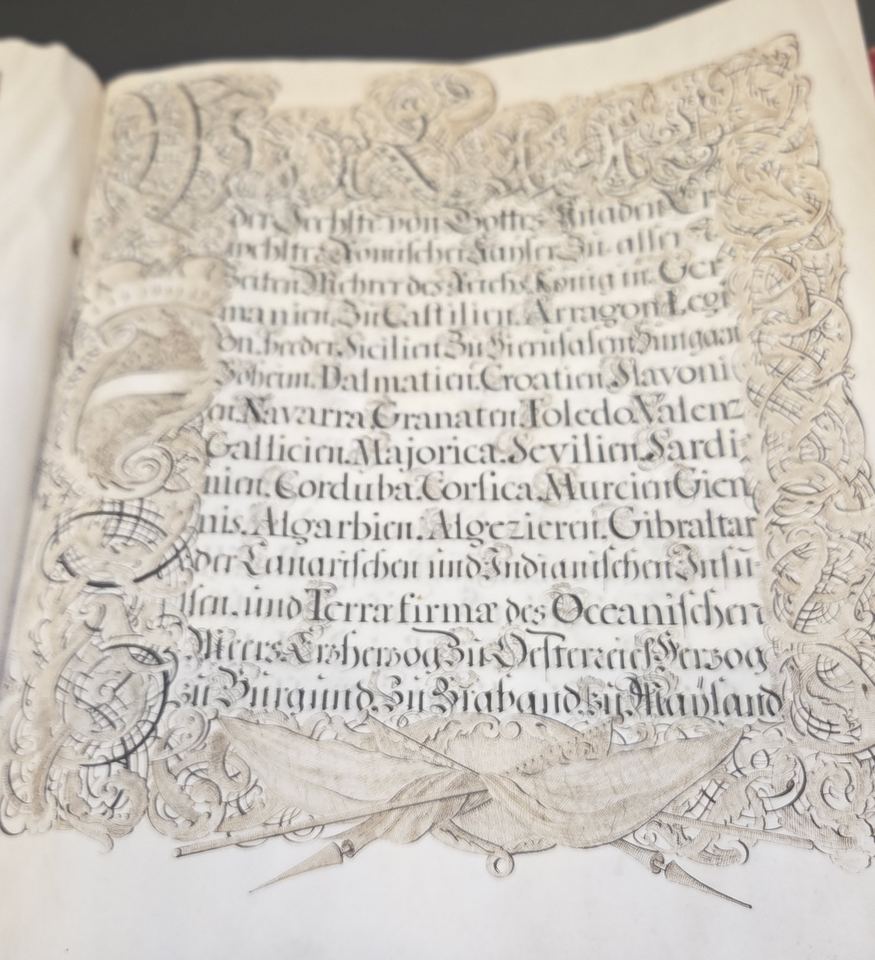 Wir Carl
der Sechste von Gottes Gnaden Er
wehlter Römischer Kayser Zu allen
Zeiten Mehrer des Reichs König in Ger
manien. Zu Castilien. Arragon Legi
on. beeder Sicilien Zu Hierusalem Hungarn
Boheim. Dalmatien. Croatien Slavoni
en. Navarra Granaten. Toledo. Valenz
Gallicien. Majorica. Sevilien. Sardi:
nien. Corduba. Corsica. Murcien Gien
nis. Algarbien. Algezieren. Gibraltar
der Canarischen und Indianischen Insu-
len. und Terra firmæ des Oceanischen
Meers. Erzherzog Zu Oesterreich Herzog
zu Burgund. Zu Braband. zu Mayland